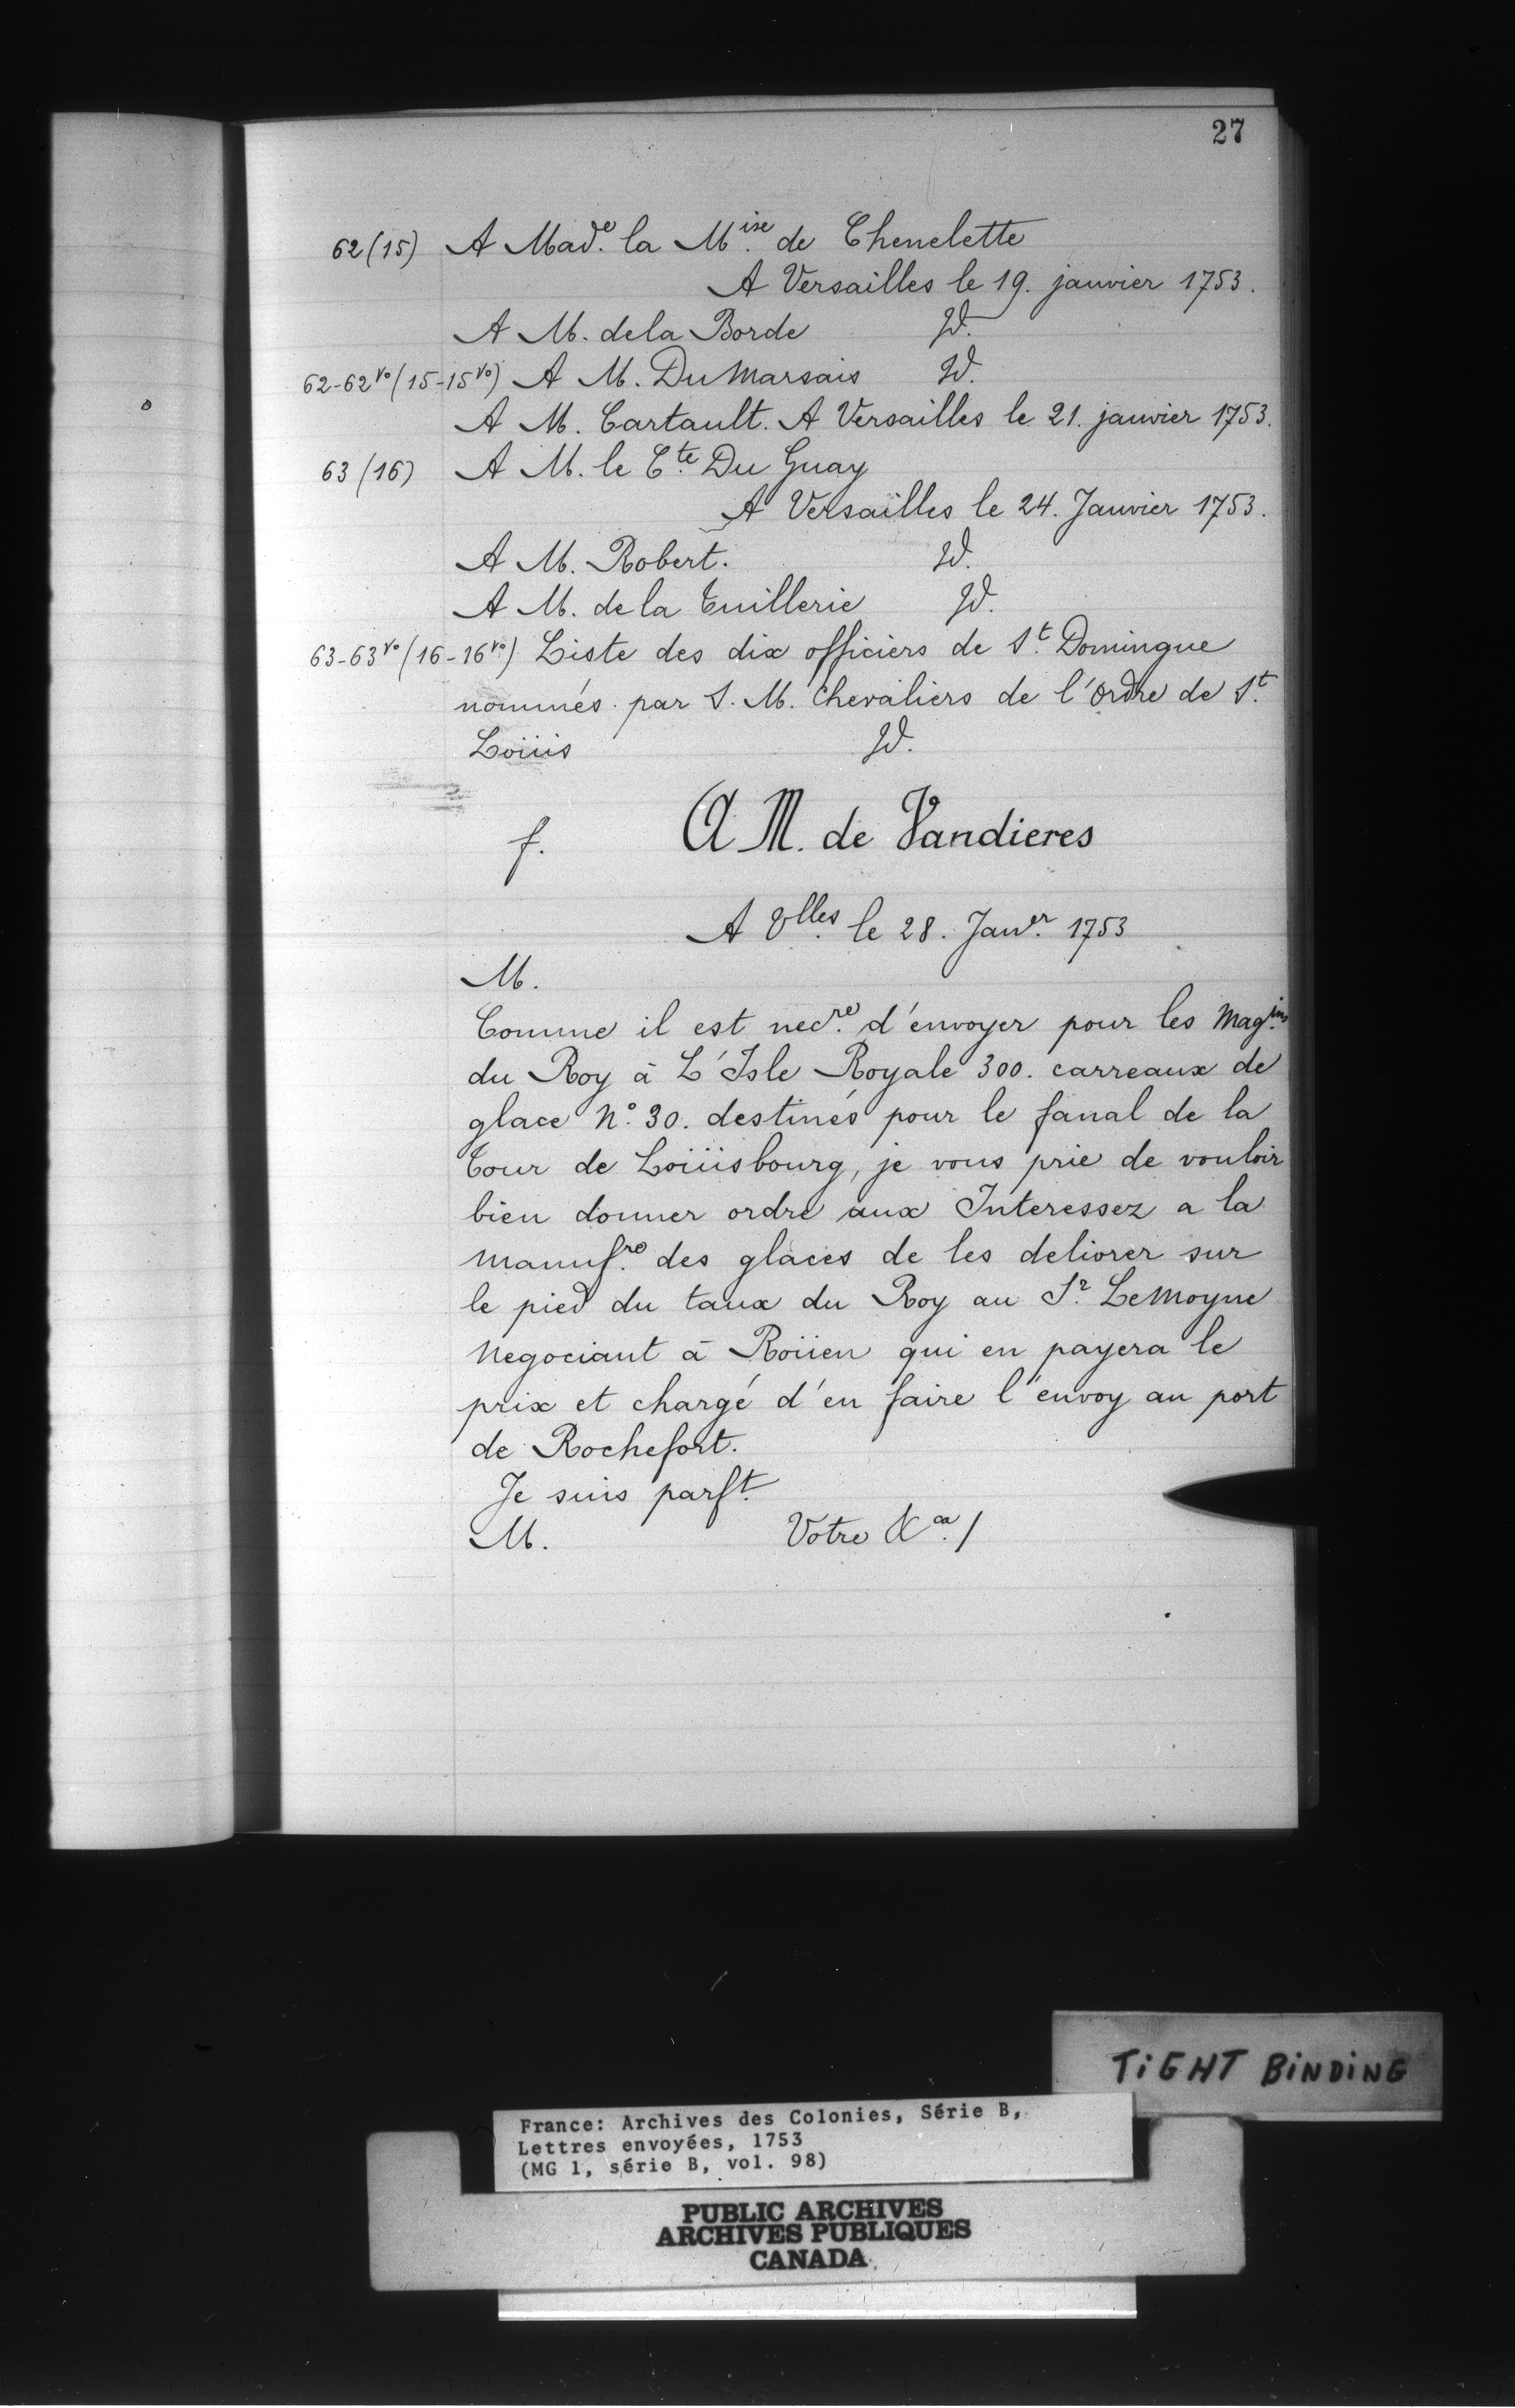 27
62 (15) A Made. la Mise. de Chenelette
A Versailles le 19. janvier 1753.
A M. de la Borde Id.
62-62vo (15-15vo) A M. Du Marsais Id.
A M. Cartault. A Versailles le 21. janvier 1753.
63 (16) A M. le Cte. Du Guay
A Versailles le 24. Janvier 1753.
A M. Robert. Id.
A M. de la Tuillerie Id.
63-63vo (16-16vo) Liste des dix officiers de St. Domingue
nommés par S. M. Chevaliers de l'Ordre de St.
Loüis Id.
f. A M. de Vandieres
A Vlles. le 28. Janver. 1753
M.
Comme il est necre. d'envoyer pour les Magins.
du Roy à L'Isle Royale 300. carreaux de
glace No. 30. destinés pour le fanal de la
Tour de Loüisbourg, je vous prie de vouloir
bien donner ordre aux Interessez a la
Manufre. des glaces de les delivrer sur
le pied du taux du Roy au Sr. LeMoyne
Negociant à Roüen qui en payera le
prix et chargé d'en faire l'envoy au port
de Rochefort.
Je suis parft.
M. Votre &a. /
TIGHT BINDING
France: Archives des Colonies, Série B,
Lettres envoyées, 1753
(MG 1, série B, vol. 98)
PUBLIC ARCHIVES
ARCHIVES PUBLIQUES
CANADA